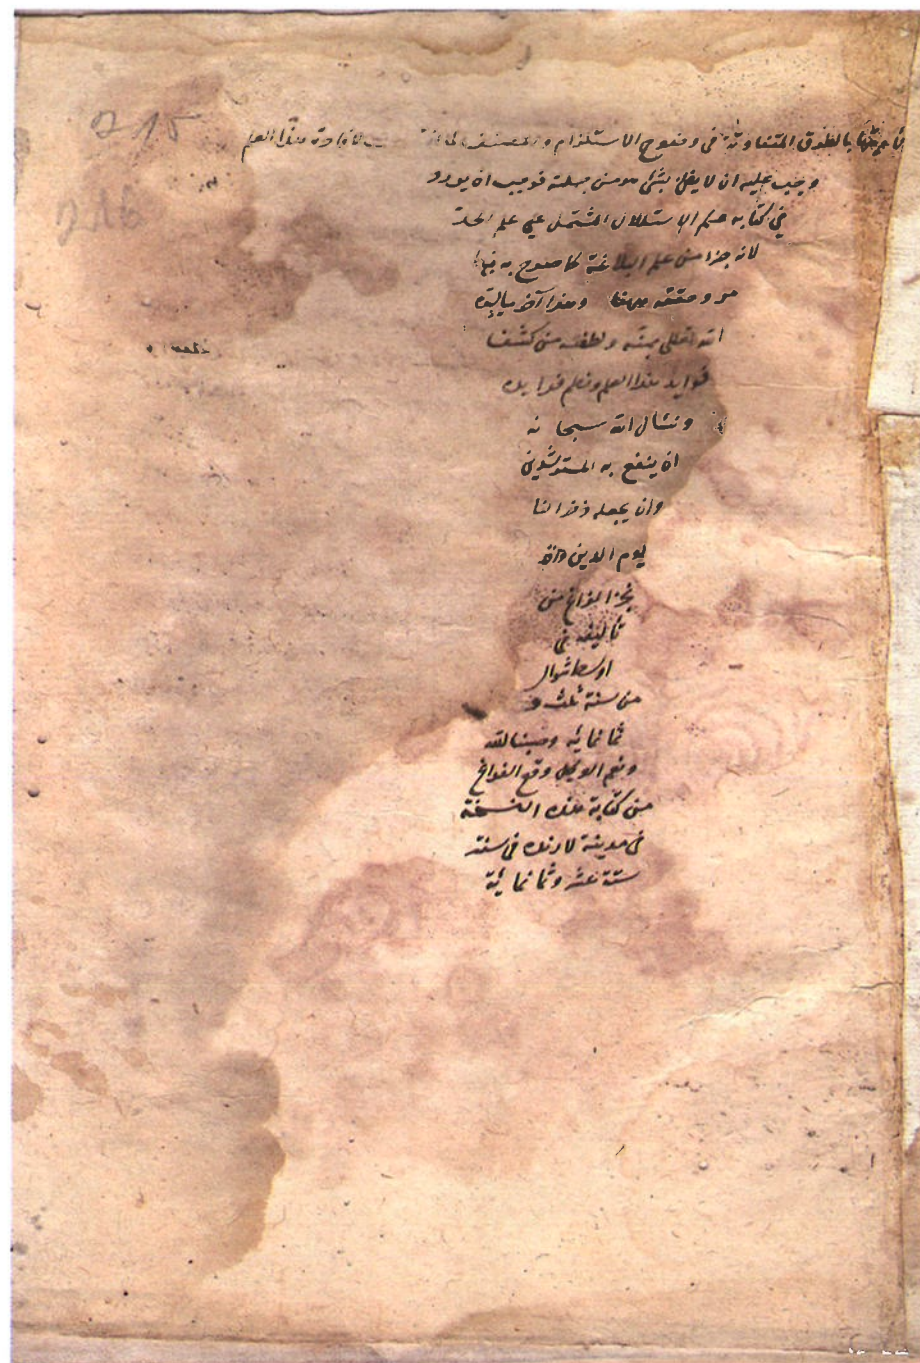 بالطرق المتفاوتة فى وضوح الاستلزام والمصنف لما هذا العلم
ويجب عليه ان لا يخل بشئ من جملته فوجب ان يورد
فى كتابه حكم الاستدلال المشتمل على علم الحد
لانه جزء من علم البلاغة كما صرح به
وحققه وهذا آخر
الله تعالى بمنه ولطفه من كشف
فوايد هذا العلم ونظم فرايده
ونسال الله سبحانه
ان ينفع به المسترشدين
وان يجعله ذخرا لنا
ليوم الدين
نجز الفراغ من
تأليفه فى
اوسط شوال
من سنة ثلث و
ثمانمائة وحسبنا الله
ونعم الوكيل وقع الفراغ
من كتابة هذه النسخة
فى مدينة لارنده فى سنة
ستة عشر وثمانمائة
215
216